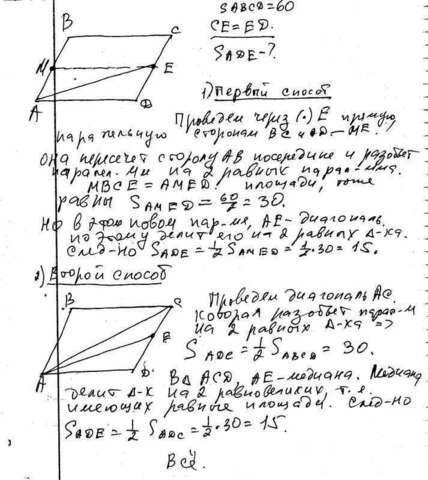 SABCD=60
CE=ED.
SADE-?
B
C
M
E
A
D
1) Первый способ
Проведем через (.) E прямую
параллельную сторонам BC и AD – ME.
Она пересечет сторону AB посередине и разобьет
паралел. мм на 2 равных парал-мма.
MBCE = AMED. площади, тоже
равны SAMED = 60/2 = 30.
Но в этом новом пар-ме, AE-диагональ,
поэтому делит его на 2 равных Δ-ка.
След-но SADE = 1/2 SAMED = 1/2·30 = 15.
2) Второй способ
B
C
E
A
D
Проведем диагональ AC.
которая разобьет парал-м
на 2 равных Δ-ка =>
SADC = 1/2 SABCD = 30.
В Δ ACD, AE-медиана. Медиана
делит Δ-к на 2 равновеликих, т.е.
имеющих равные площади. След-но
SADE = 1/2 SADC = 1/2·30 = 15.
Всё.